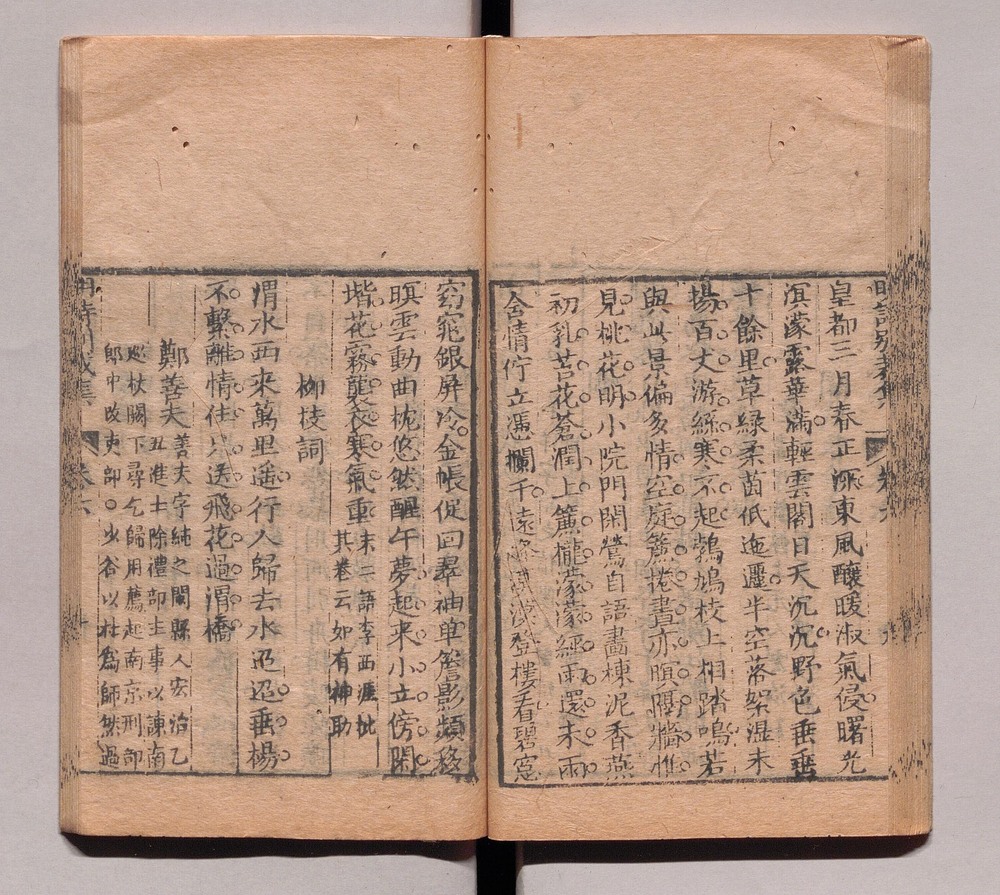 皇都三月春正深東風釀暖淑氣侵曙光
溟濛露華滿輕雲閣日天沉沉野色垂垂
十餘里草綠柔茵低迤邐半空落絮濕未
揚百丈游絲寒不起鵓鳩枝上相踏鳴若
與此景偏多情空庭簾捲晝亦暝隔牆惟
見桃花明小院門閑鶯自語畫棟泥香燕
初乳芸花蒼潤上簾櫳濛濛經雨還未雨
含情佇立憑欄干遠 漠漠登樓看碧窓
窈窕銀屏冷金帳促回翠袖单簷影頻移
暝雲動曲枕悠然醒午夢起来小立傍閑
堦花霧襲衣寒氣重末二語李西涯批
其卷云如有神助
柳枝詞
渭水西來萬里遙行人歸去水迢迢垂楊
不繫離情住只送飛花過渭橋
鄭善夫善夫字純之閩縣人宏治乙
丑進士除禮部主事以諫南
巡杖闕下尋乞歸用薦起南京刑部
郎中改吏部○少谷以杜爲師然過
卷六